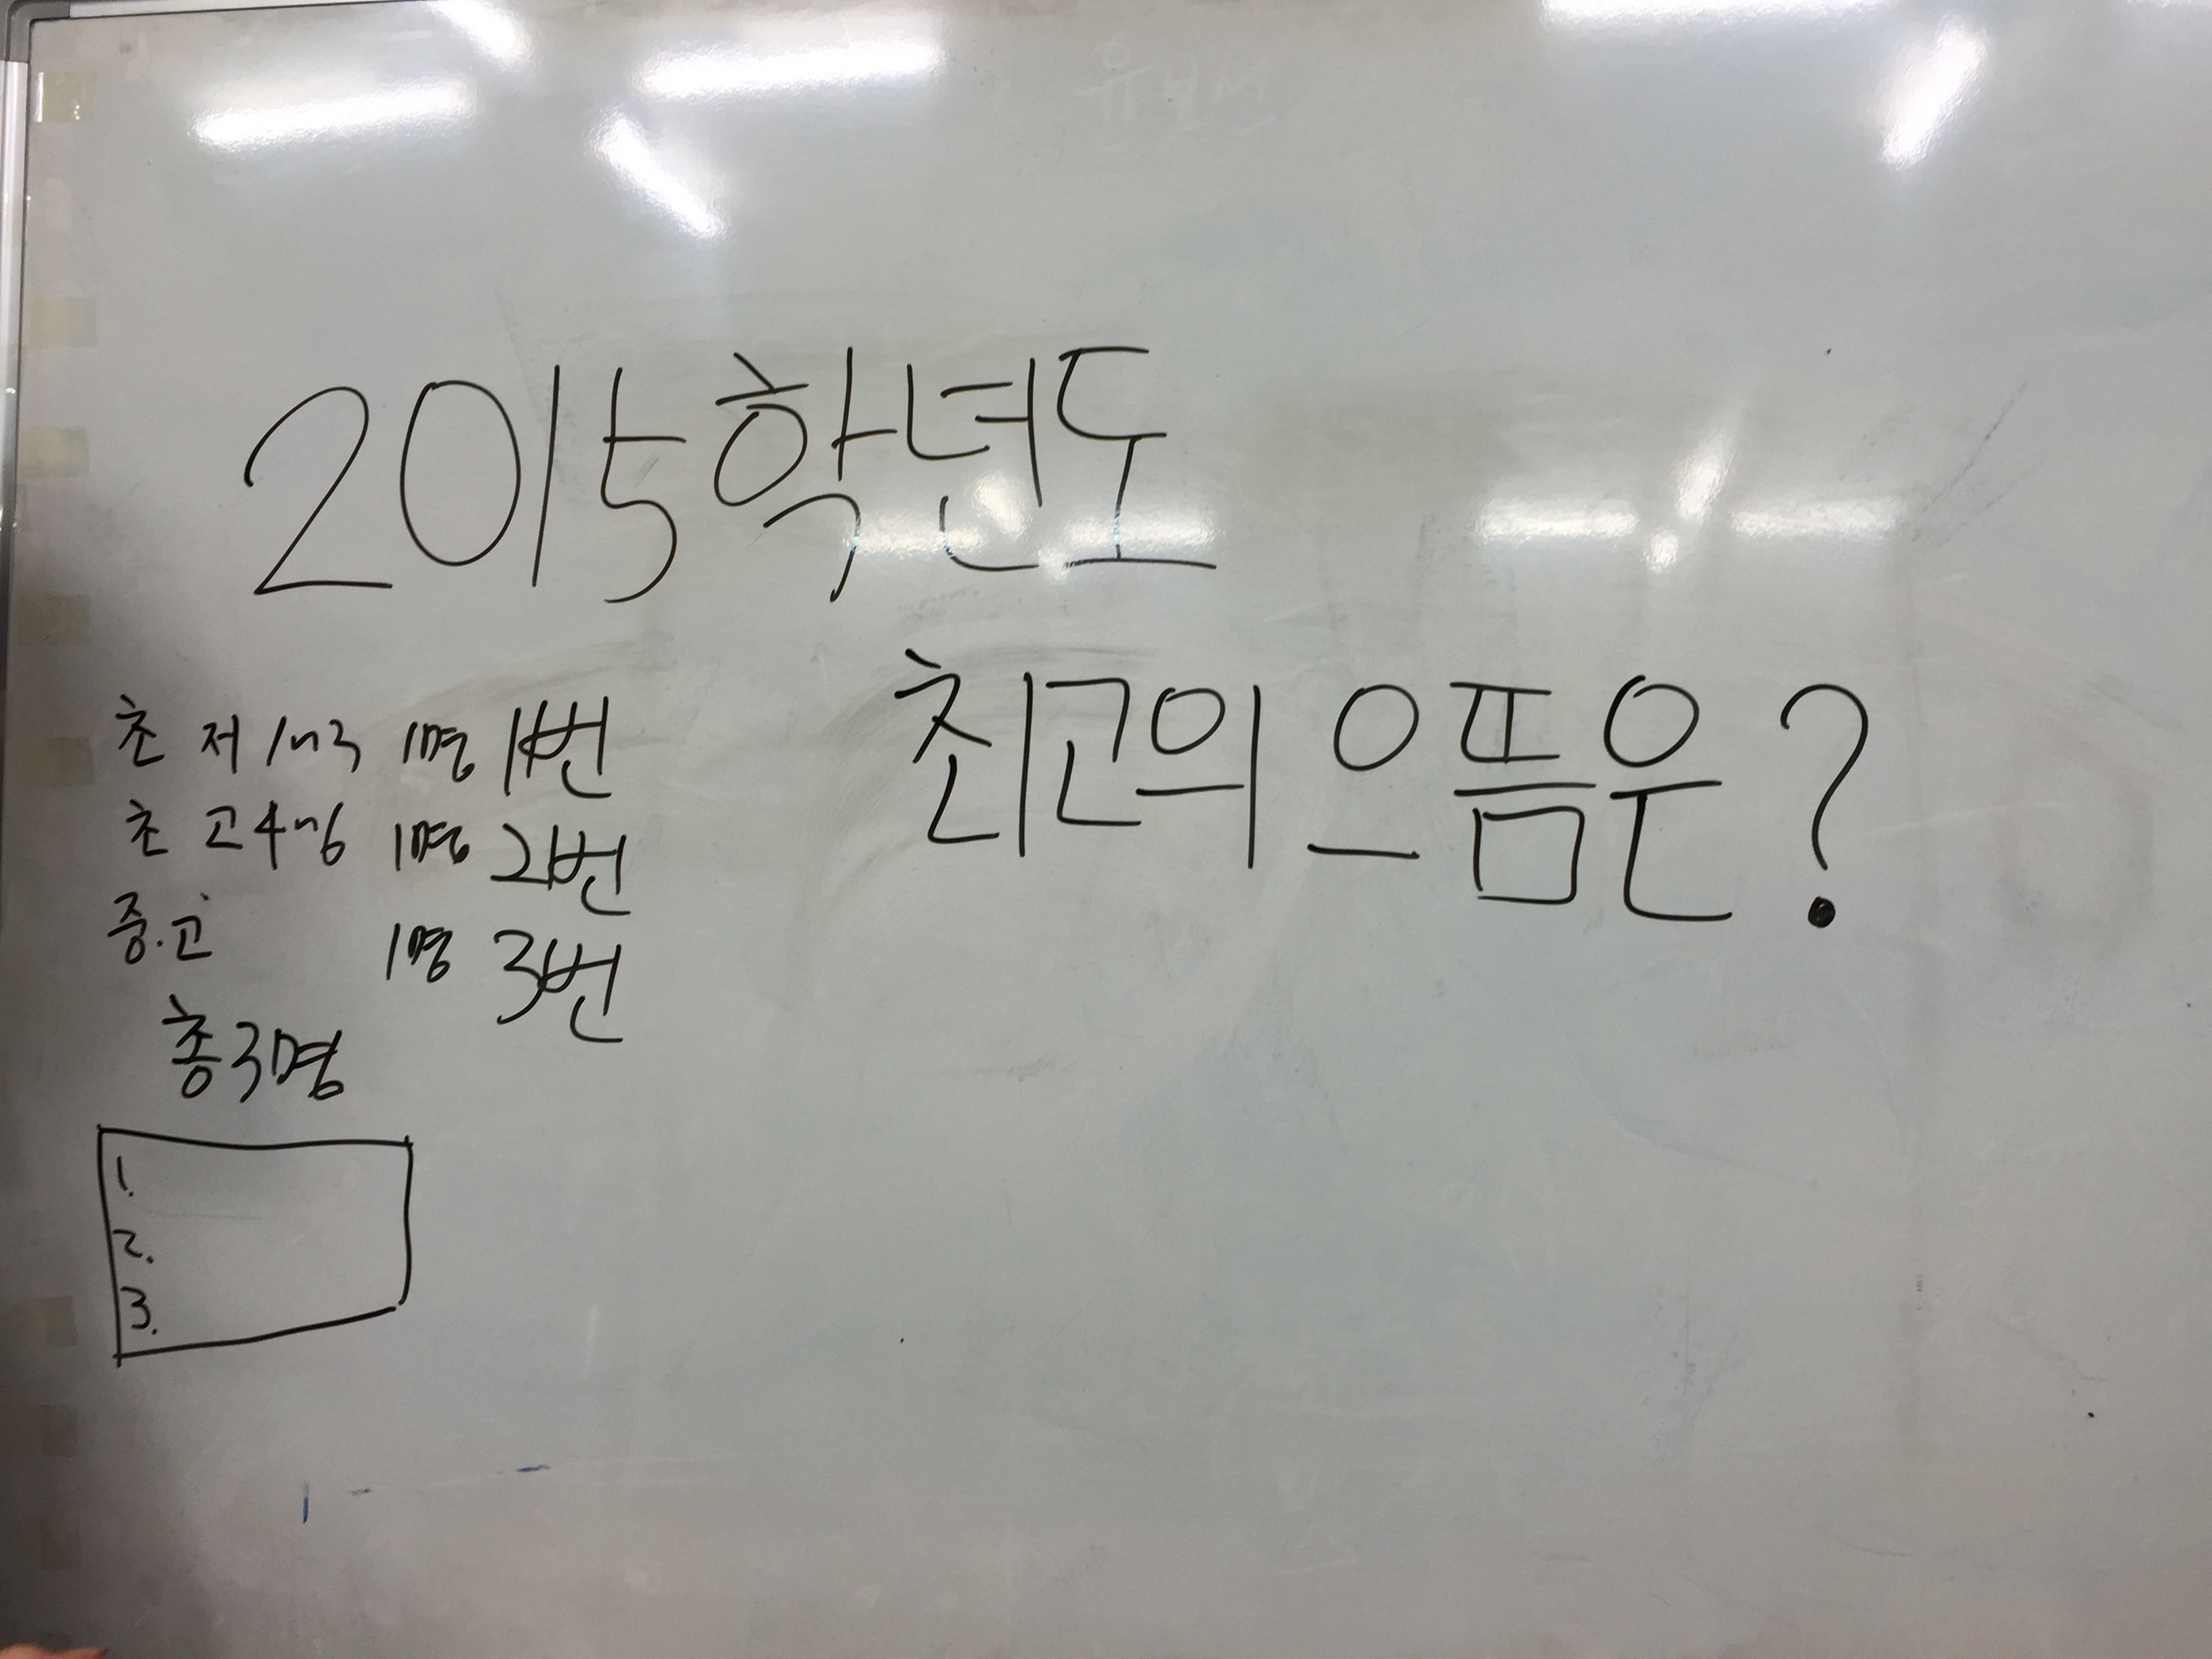 2015학년도
최고의 으뜸은?
초 저 1~3 1명 1번
초 고 4~6 1명 2번
중.고 1명 3번
총 3명
1.
2.
3.